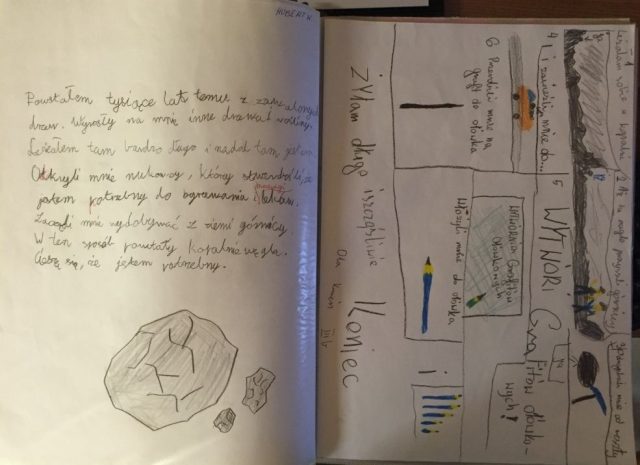 HUBERT K
Powstałem tysiące lat temu z
drzew. Wyrosły na mnie inne drzewa i rośliny.
Leżałem tam bardzo długo i nadal tam jestem
Odkryli mnie naukowcy, którzy stwierdzili, że
jestem potrzebny do ogrzewania i
Zaczęli mnie wydobywać z ziemi górnicy.
W ten sposób powstały kopalnie węgla.
Cieszę się, że jestem potrzebny.
1 Leżałam sobie w kopalni
2 Aż tu nagle przyszli górnicy
mnie od reszty
4 i zawieźli mnie do...
5 WYTWÓRNI Grafitów ołówko-
wych!
WYTWÓRNIA Grafitów
Ołówkowych
6 Przerobili mnie na
grafit do ołówka
Włożyli mnie do ołówka
i
żyłam długo i szczęśliwie
Koniec
Ola
III b